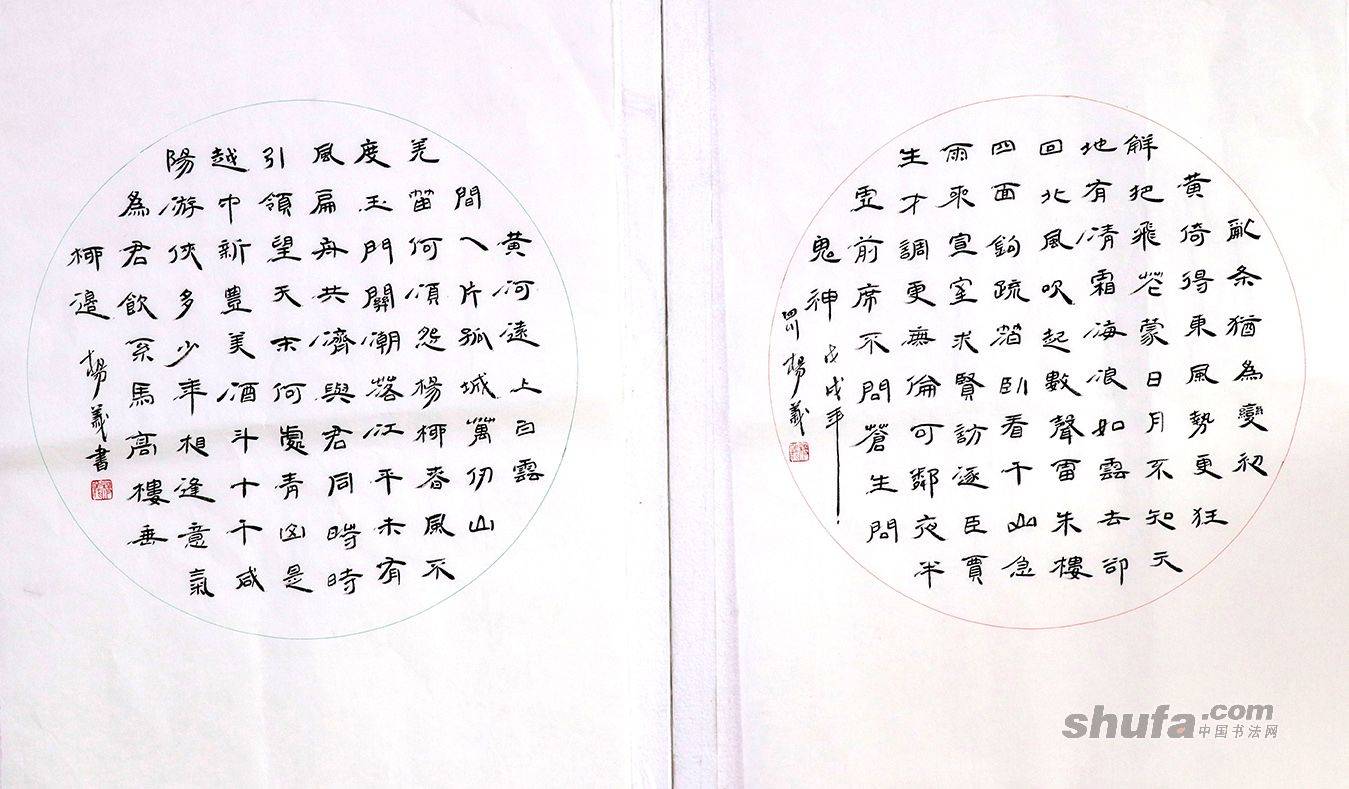 亂条猶為變初
黄倚得東風勢更狂
解把飛花蒙日月不知天
地有清霜海浪如雲去卻
回北風吹起數聲雷朱樓
四面鈎疏箔臥看千山急
雨來宣室求賢訪逐臣賈
生才調更無倫可鄰夜半
虚前席不問蒼生問
鬼神 戊戌年
四川 楊義
黄河遠上白雲
間一片孤城萬仞山
羌笛何須怨楊柳春風不
度玉門關潮落江平未有
風扁舟共濟與君同時時
引領望天末何處青山是
越中新豐美酒斗十千咸
陽游俠多少年相逢意氣
為君飲系馬高樓垂
柳邊
楊義書
shufa.com
中国书法网